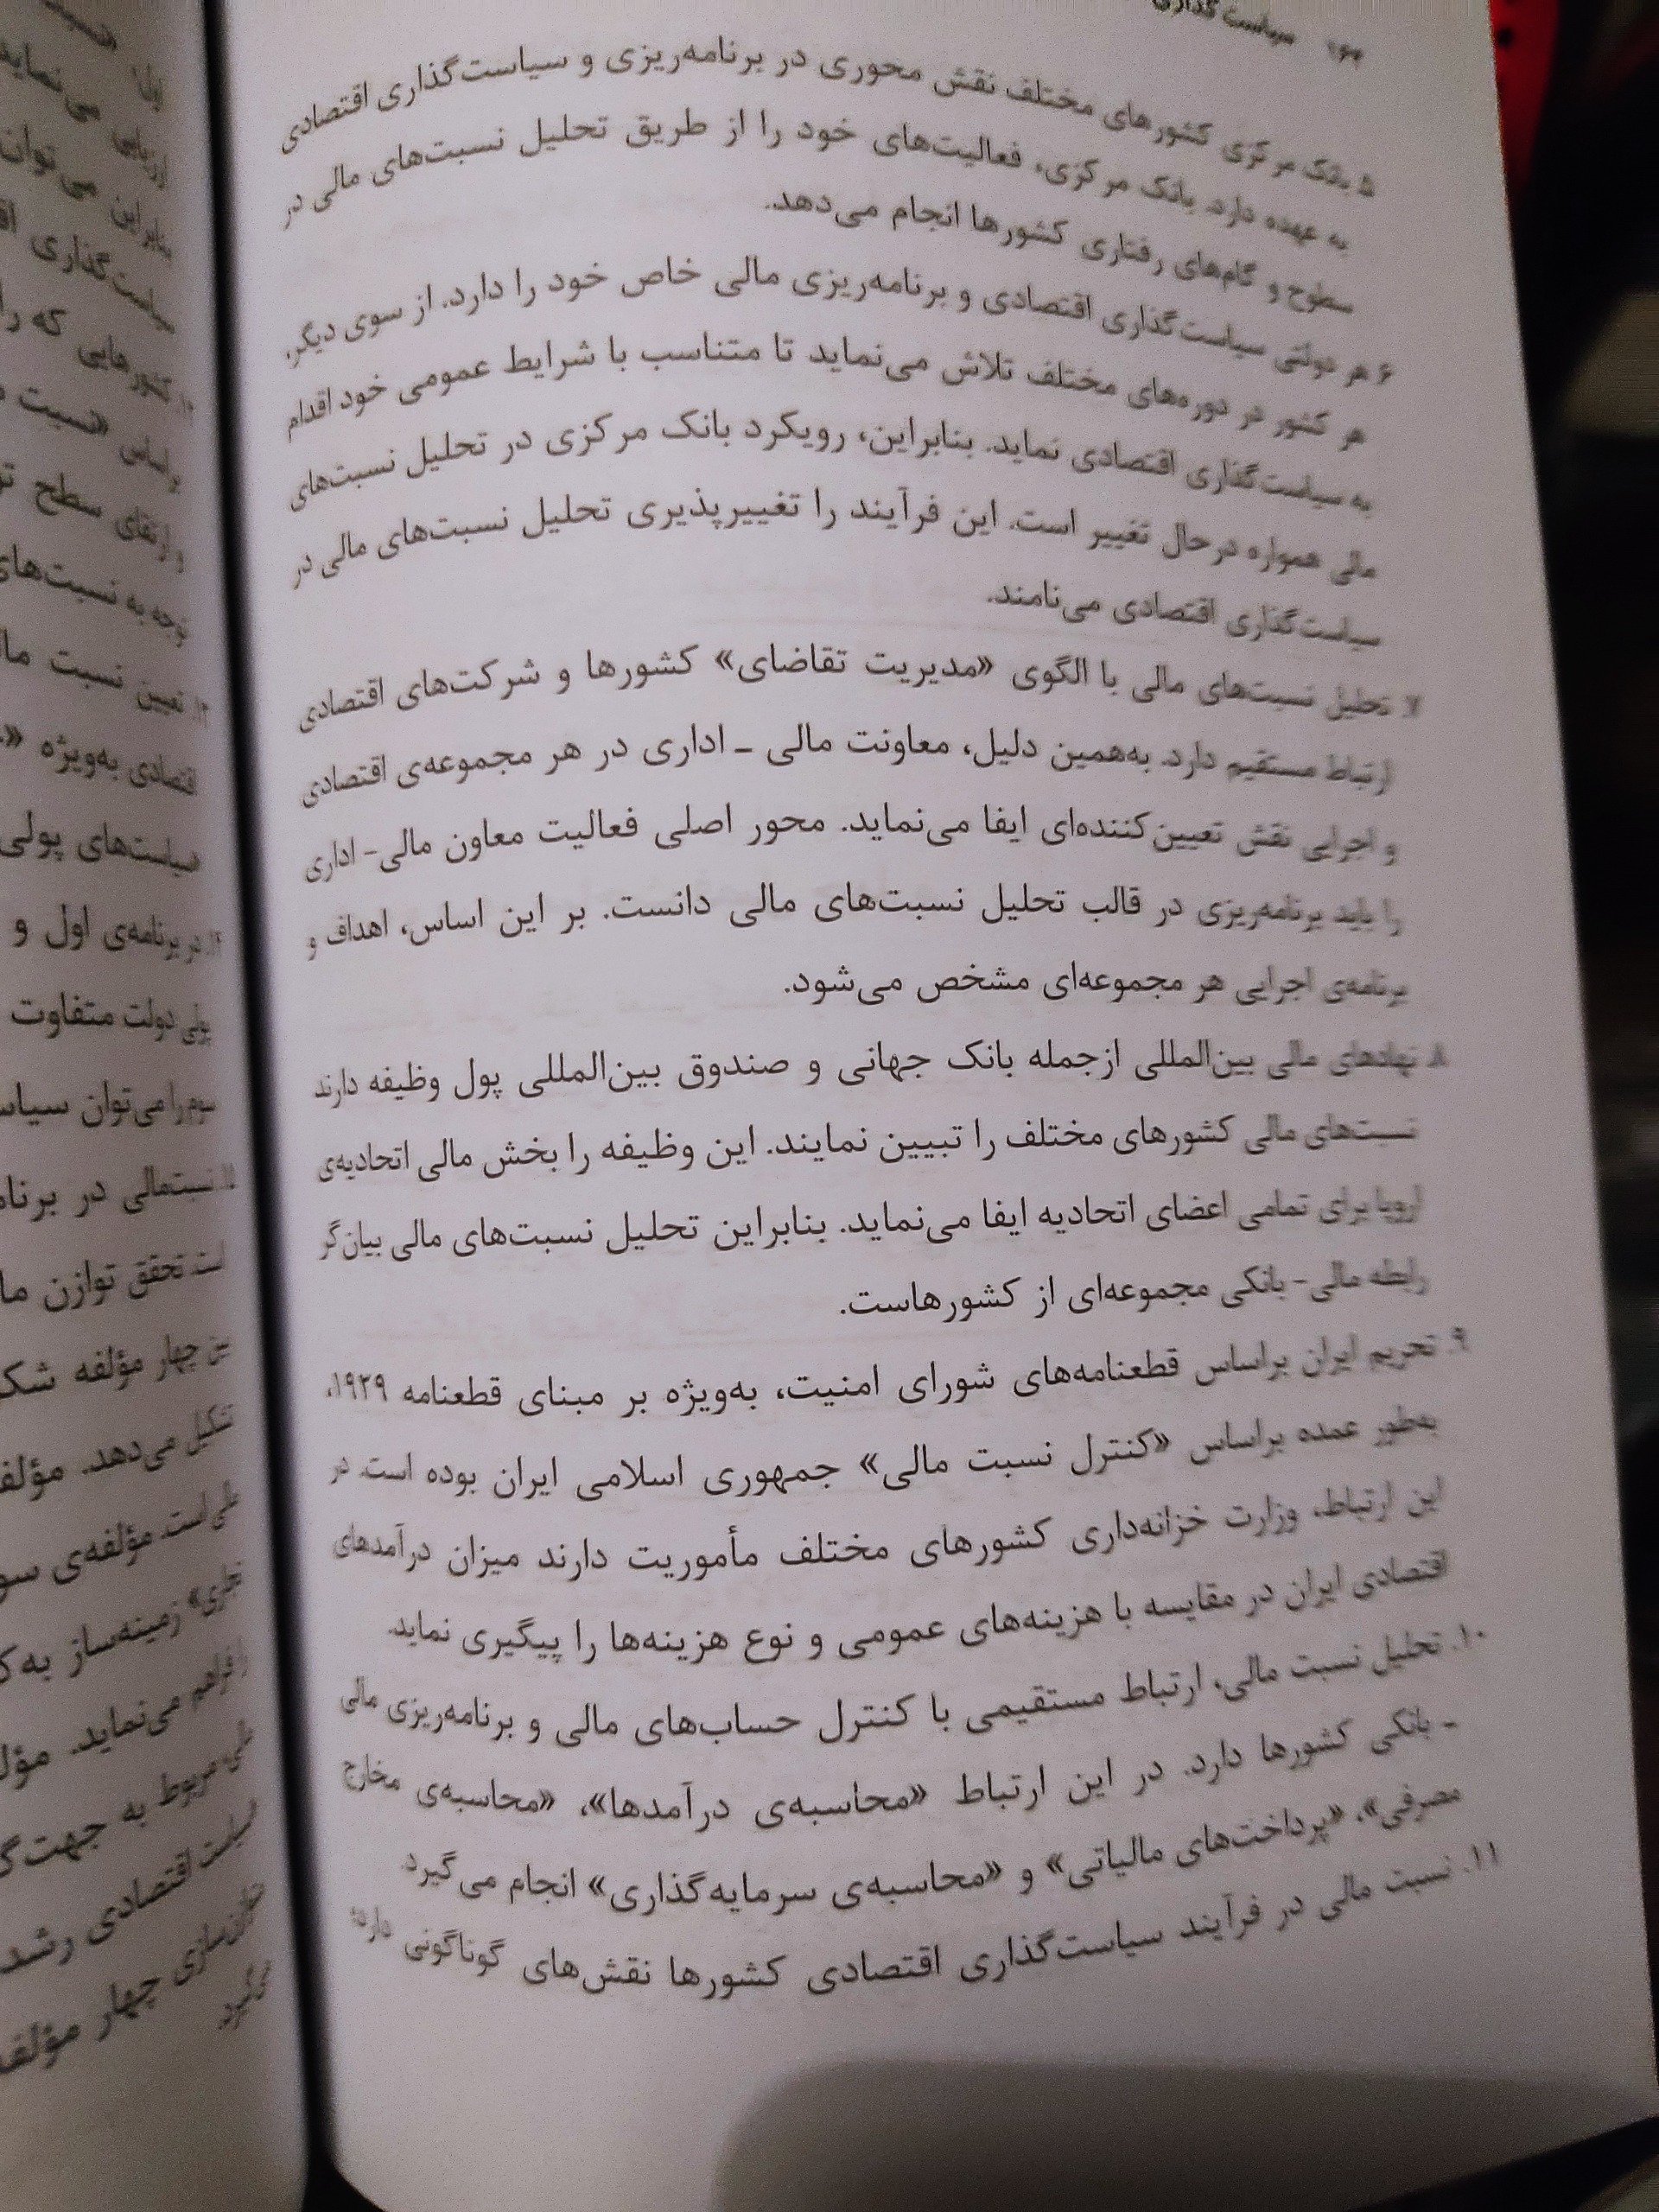 سیاست‌گذاری
۵. بانک مرکزی کشورهای مختلف نقش محوری در برنامه‌ریزی و سیاست‌گذاری اقتصادی
به عهده دارد. بانک مرکزی، فعالیت‌های خود را از طریق تحلیل نسبت‌های مالی در
سطوح و گام‌های رفتاری کشورها انجام می‌دهد.
۶. هر دولتی سیاست‌گذاری اقتصادی و برنامه‌ریزی مالی خاص خود را دارد. از سوی دیگر،
هر کشور در دوره‌های مختلف تلاش می‌نماید تا متناسب با شرایط عمومی خود اقدام
به سیاست‌گذاری اقتصادی نماید. بنابراین، رویکرد بانک مرکزی در تحلیل نسبت‌های
مالی همواره درحال تغییر است. این فرآیند را تغییرپذیری تحلیل نسبت‌های مالی در
سیاست‌گذاری اقتصادی می‌نامند.
۷. تحلیل نسبت‌های مالی با الگوی «مدیریت تقاضای» کشورها و شرکت‌های اقتصادی
ارتباط مستقیم دارد. به‌همین دلیل، معاونت مالی ـ اداری در هر مجموعه‌ی اقتصادی
و اجرایی نقش تعیین‌کننده‌ای ایفا می‌نماید. محور اصلی فعالیت معاون مالی- اداری
را باید برنامه‌ریزی در قالب تحلیل نسبت‌های مالی دانست. بر این اساس، اهداف و
برنامه‌ی اجرایی هر مجموعه‌ای مشخص می‌شود.
۸. نهادهای مالی بین‌المللی ازجمله بانک جهانی و صندوق بین‌المللی پول وظیفه دارند
نسبت‌های مالی کشورهای مختلف را تبیین نمایند. این وظیفه را بخش مالی اتحادیه‌ی
اروپا برای تمامی اعضای اتحادیه ایفا می‌نماید. بنابراین تحلیل نسبت‌های مالی بیان‌گر
رابطه مالی- بانکی مجموعه‌ای از کشورهاست.
۹. تحریم ایران براساس قطعنامه‌های شورای امنیت، به‌ویژه بر مبنای قطعنامه ۱۹۲۹،
به‌طور عمده براساس «کنترل نسبت مالی» جمهوری اسلامی ایران بوده است. در
این ارتباط، وزارت خزانه‌داری کشورهای مختلف مأموریت دارند میزان درآمدهای
اقتصادی ایران در مقایسه با هزینه‌های عمومی و نوع هزینه‌ها را پیگیری نماید.
۱۰. تحلیل نسبت مالی، ارتباط مستقیمی با کنترل حساب‌های مالی و برنامه‌ریزی مالی
ـ بانکی کشورها دارد. در این ارتباط «محاسبه‌ی درآمدها»، «محاسبه‌ی مخارج
مصرفی»، «پرداخت‌های مالیاتی» و «محاسبه‌ی سرمایه‌گذاری» انجام می‌گیرد.
۱۱. نسبت مالی در فرآیند سیاست‌گذاری اقتصادی کشورها نقش‌های گوناگونی دارد؛
می‌نماید
بنابراین می‌توان
سیاست‌گذاری
کشورهایی که
براساس «نسبت
و ارتقای سطح
توجه به نسبت‌های
تعیین نسبت
اقتصادی به‌ویژه
سیاست‌های پولی
در برنامه‌ی اول و
پولی دولت متفاوت
سوم را می‌توان
نسبت‌مالی در
است. تحقق توازن
چهار مؤلفه
تشکیل می‌دهد.
است. مؤلفه‌ی
زمینه‌ساز
فراهم می‌نماید.
مربوط به
سیاست اقتصادی رشد
چهار